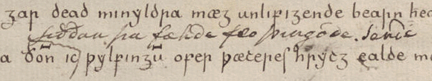 ȝar dead minyldra mæȝ unlifiȝende bearn hea
siððan þa fæhðe feo þingode. sende
a ðoñ ic ƿylfinȝū ofer ƿæteres hrẏcȝ ealde ma